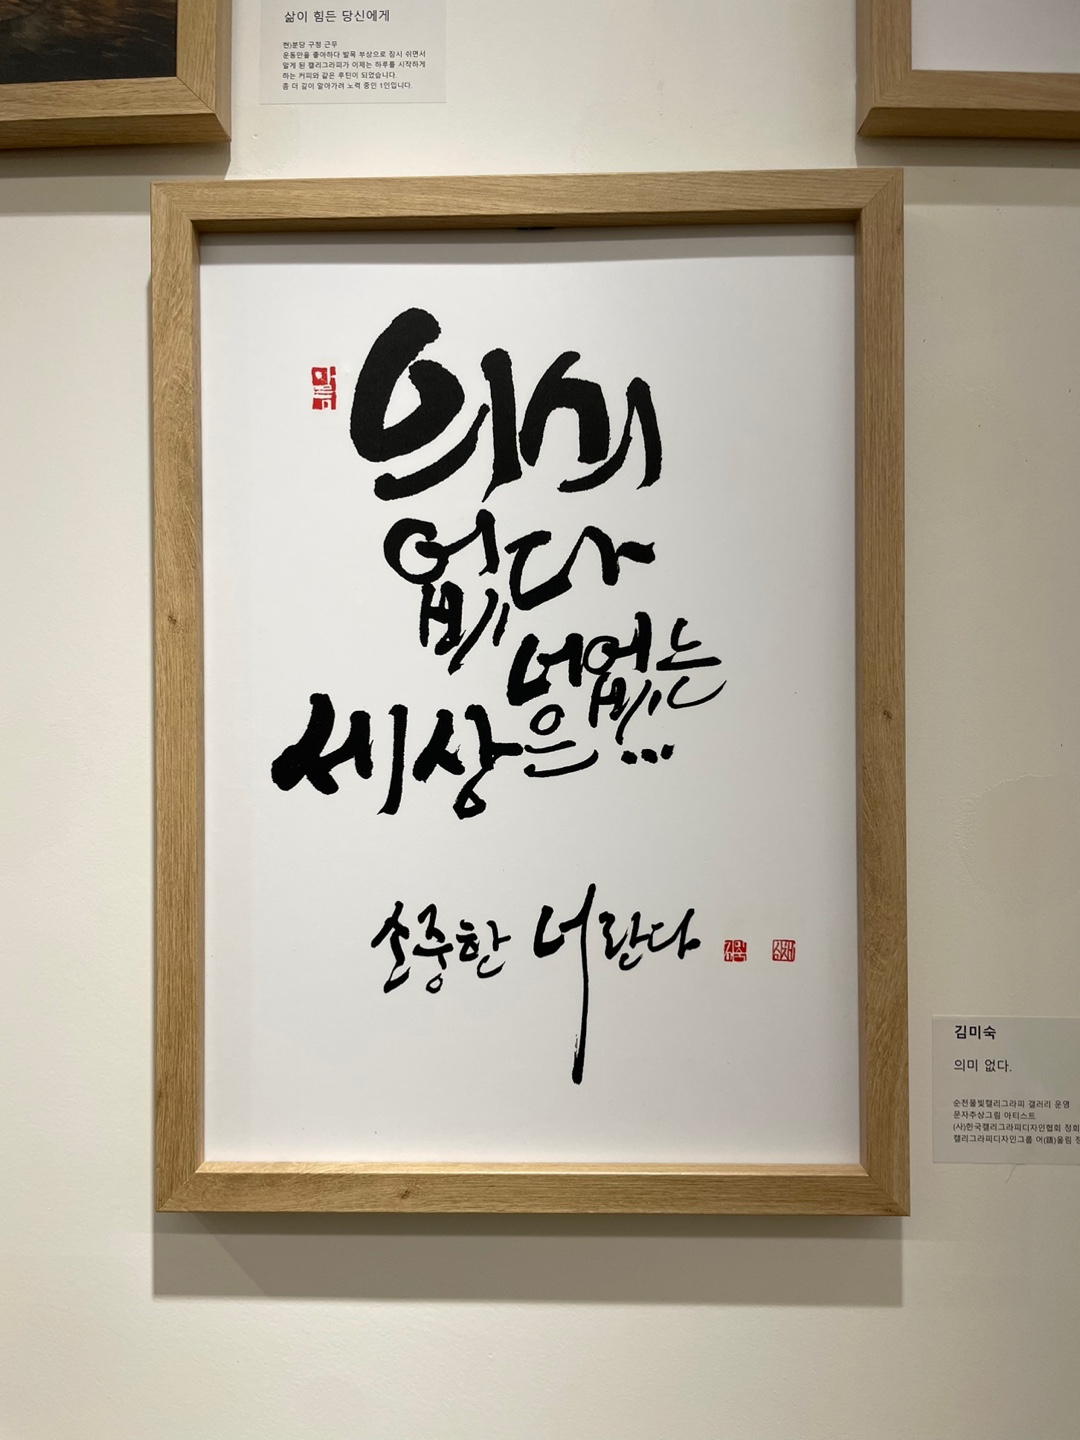 삶이 힘든 당신에게
현)분당 구청 근무
운동만을 좋아하다 발목 부상으로 잠시 쉬면서
알게 된 캘리그라피가 이제는 하루를 시작하게
하는 커피와 같은 루틴이 되었습니다.
좀 더 깊이 알아가려 노력 중인 1인입니다.
의미
없다
너 없는
세상은...
소중한 너란다
김미숙
의미 없다.
순천물빛캘리그라피 갤러리 운영
문자추상그림 아티스트
(사)한국캘리그라피디자인협회 정회
캘리그라피디자인그룹 어(語)울림 정